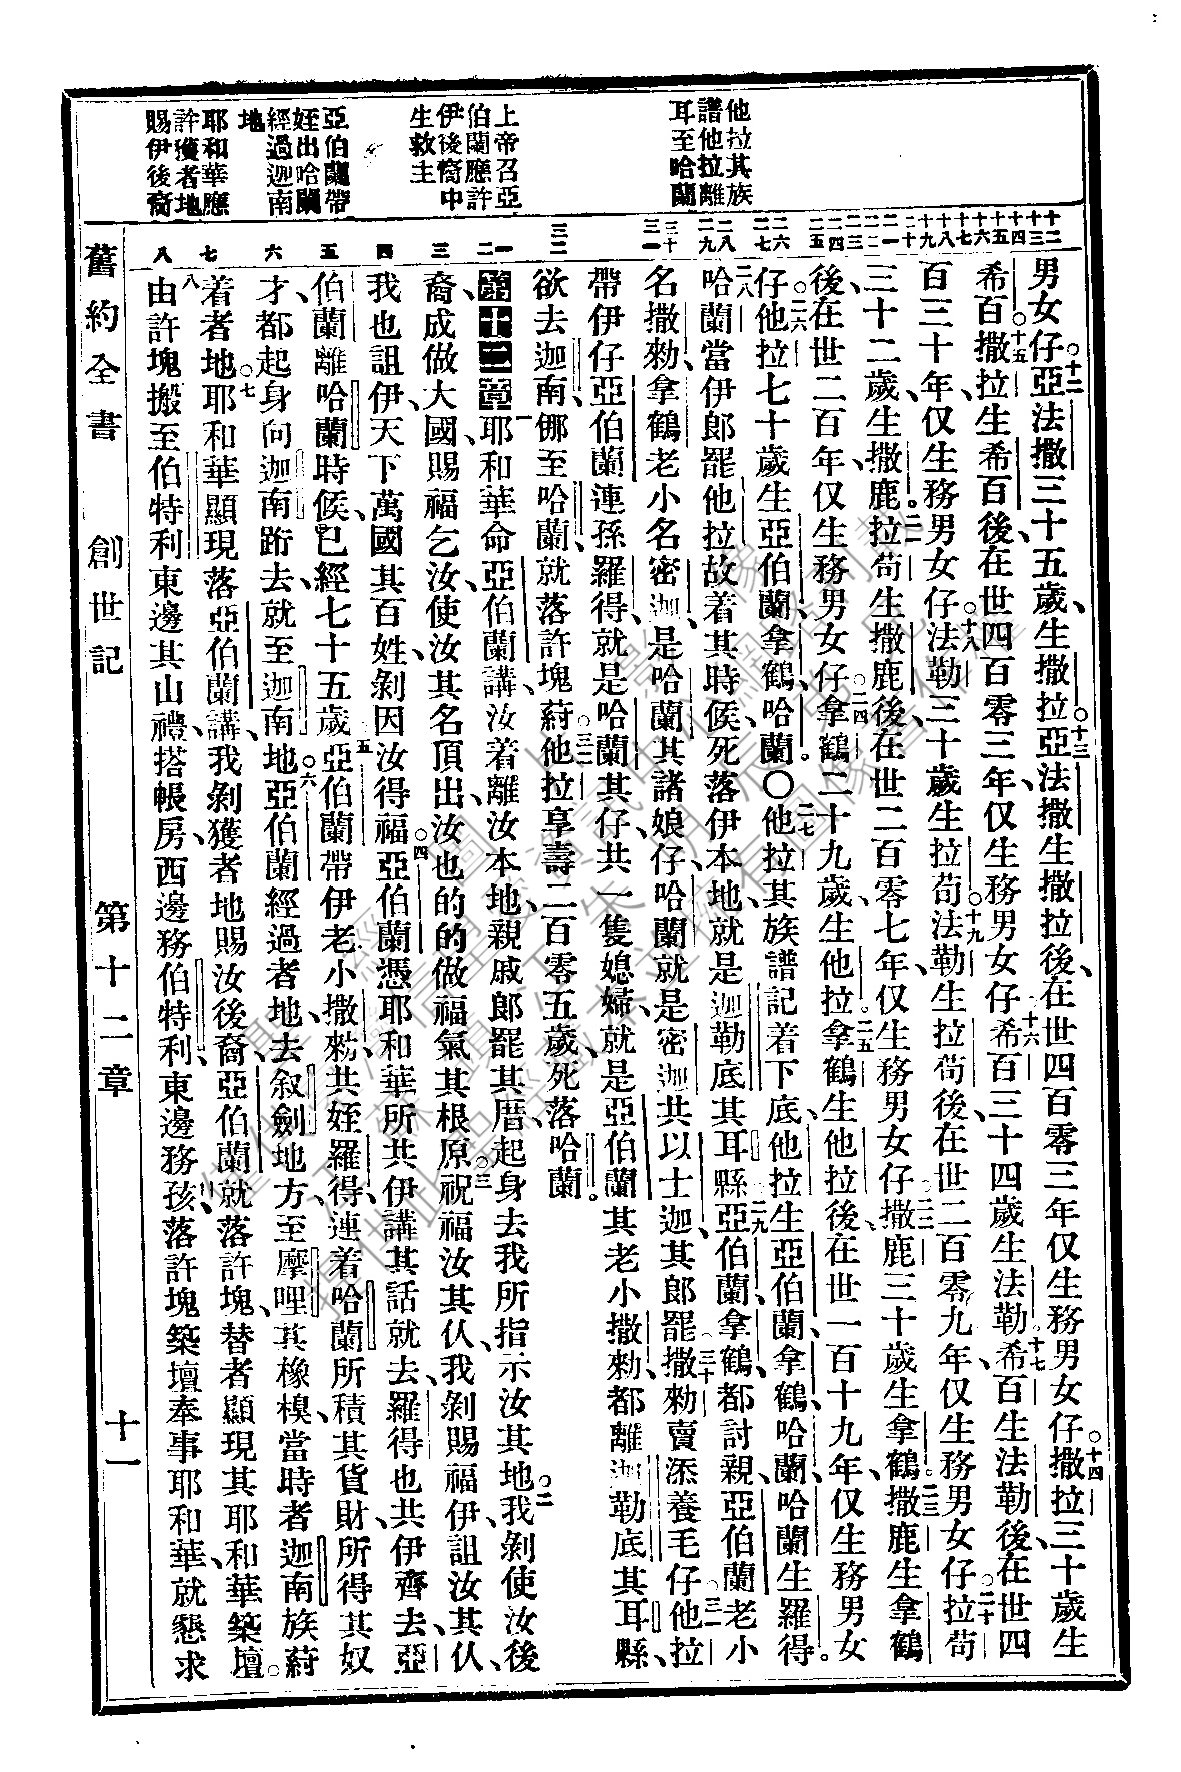 他拉其族
譜他拉離
耳至哈蘭
上帝召亞
伯蘭應許
伊後裔中
生救主
亞伯蘭帶
姪出哈蘭
經過迦南
地
耶和華應
許獲者地
賜伊後裔
十二
十三
十四
十五
十六
十七
十八
十九
二十
二一
二二
二三
二四
二五
二六
二七
二八
二九
三十
三一
三二
一
二
三
四
五
六
七
八
男女仔。十二亞法撒三十五歲、生撒拉。十三亞法撒生撒拉後、在世四百零三年、仅生務男女仔。十四撒拉三十歲、生
希百。十五撒拉生希百後、在世四百零三年、仅生務男女仔。十六希百三十四歲、生法勒。十七希百生法勒後、在世四
百三十年、仅生務男女仔。十八法勒三十歲、生拉苟。十九法勒生拉苟後、在世二百零九年、仅生務男女仔。二十拉苟
三十二歲、生撒鹿。二一拉苟生撒鹿後、在世二百零七年、仅生務男女仔。二二撒鹿三十歲、生拿鶴。二三撒鹿生拿鶴
後、在世二百年、仅生務男女仔。二四拿鶴二十九歲、生他拉。二五拿鶴生他拉後、在世一百十九年、仅生務男女
仔。二六他拉七十歲、生亞伯蘭、拿鶴、哈蘭。〇二七他拉其族譜記着下底、他拉生亞伯蘭、拿鶴、哈蘭、哈蘭生羅得。
二八哈蘭當伊郎罷他拉故着其時候、死落伊本地、就是迦勒底其耳縣。二九亞伯蘭、拿鶴、都討親、亞伯蘭老小
名撒勑、拿鶴老小名密迦、是哈蘭其諸娘仔、哈蘭就是密迦共以士迦其郎罷。三十撒勑賣添養毛仔。三一他拉
帶伊仔亞伯蘭、連孫羅得、就是哈蘭其仔、共一隻媳婦、就是亞伯蘭其老小撒勑、都離迦勒底其耳縣、
欲去迦南、㑚至哈蘭、就落許塊𦵯。三二他拉享壽二百零五歲、死落哈蘭。
第十二章一耶和華命亞伯蘭講、汝着離汝本地、親戚、郎罷其厝、起身去我所指示汝其地。二我剝使汝後
裔成做大國、賜福乞汝、使汝其名頂出、汝也的的做福氣其根原。三祝福汝其伩、我剝賜福伊、詛汝其伩、
我也詛伊、天下萬國其百姓、剝因汝得福。四亞伯蘭憑耶和華所共伊講其話就去、羅得也共伊齊去、亞
伯蘭離哈蘭時候、已經七十五歲。五亞伯蘭帶伊老小撒勑、共姪羅得、連着哈蘭所積其貨財、所得其奴
才、都起身向迦南跗去、就至迦南地。六亞伯蘭經過者地、去叙劍地方、至摩哩其橡模、當時者迦南族𦵯
着者地。七耶和華顯現落亞伯蘭講、我剝獲者地賜汝後裔、亞伯蘭就落許塊、替者顯現其耶和華築壇。
八由許塊搬至伯特利東邊其山禮、搭帳房、西邊務伯特利、東邊務孩、落許塊築壇奉事耶和華、就懇求
舊約全書 創世記 第十二章 十一